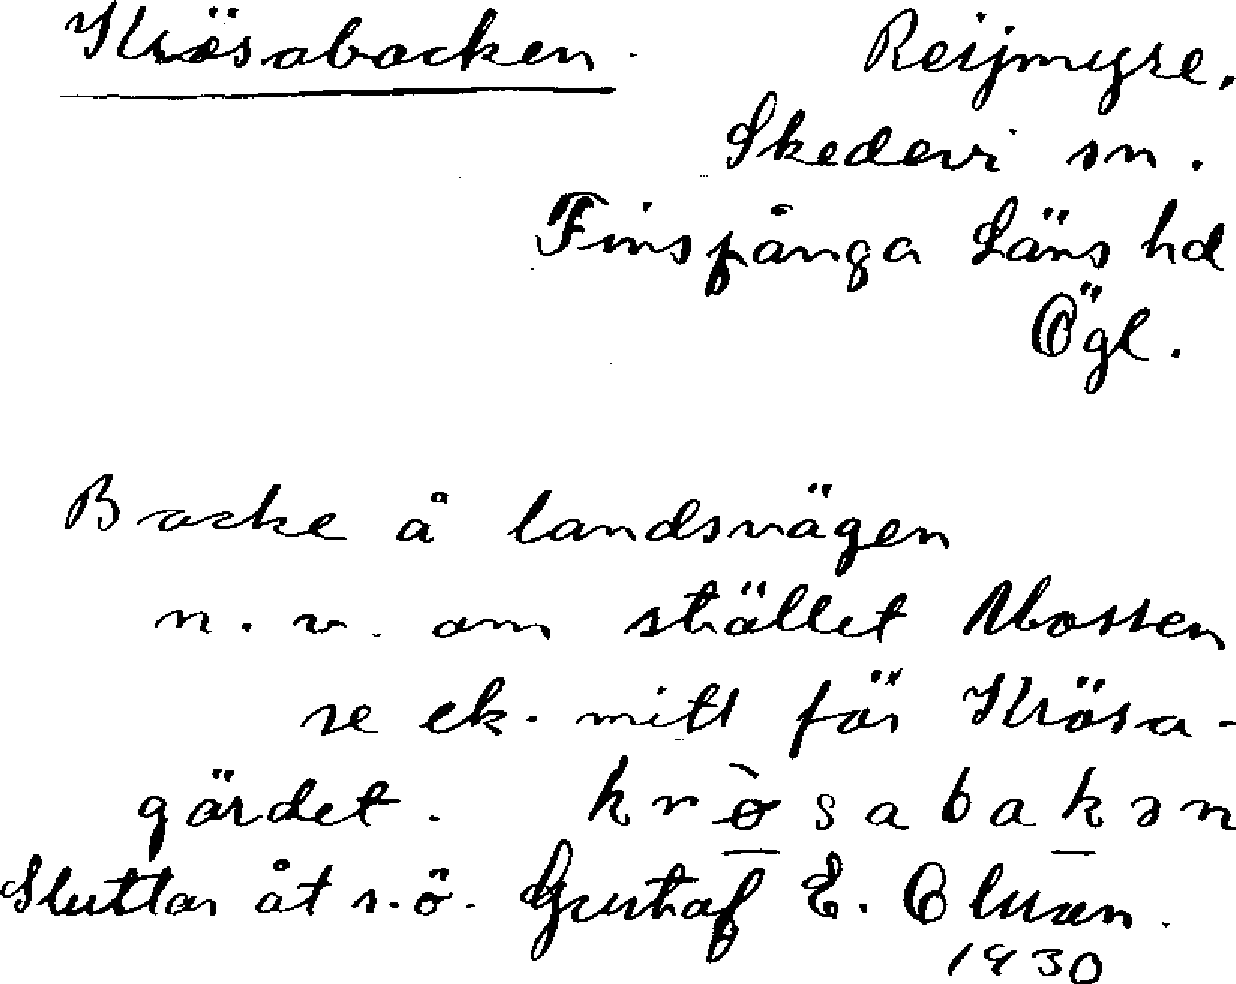 Krösabacken. Reijmyre,
Skedevi sn.
Finspånga Läns hd
Ögl.
Backe å landsvägen
n. v. om stället Mossen
se ek. mitt för Krösa-
gärdet. krø̀sabakən
Sluttar åt s.ö. Gustaf E.
1930